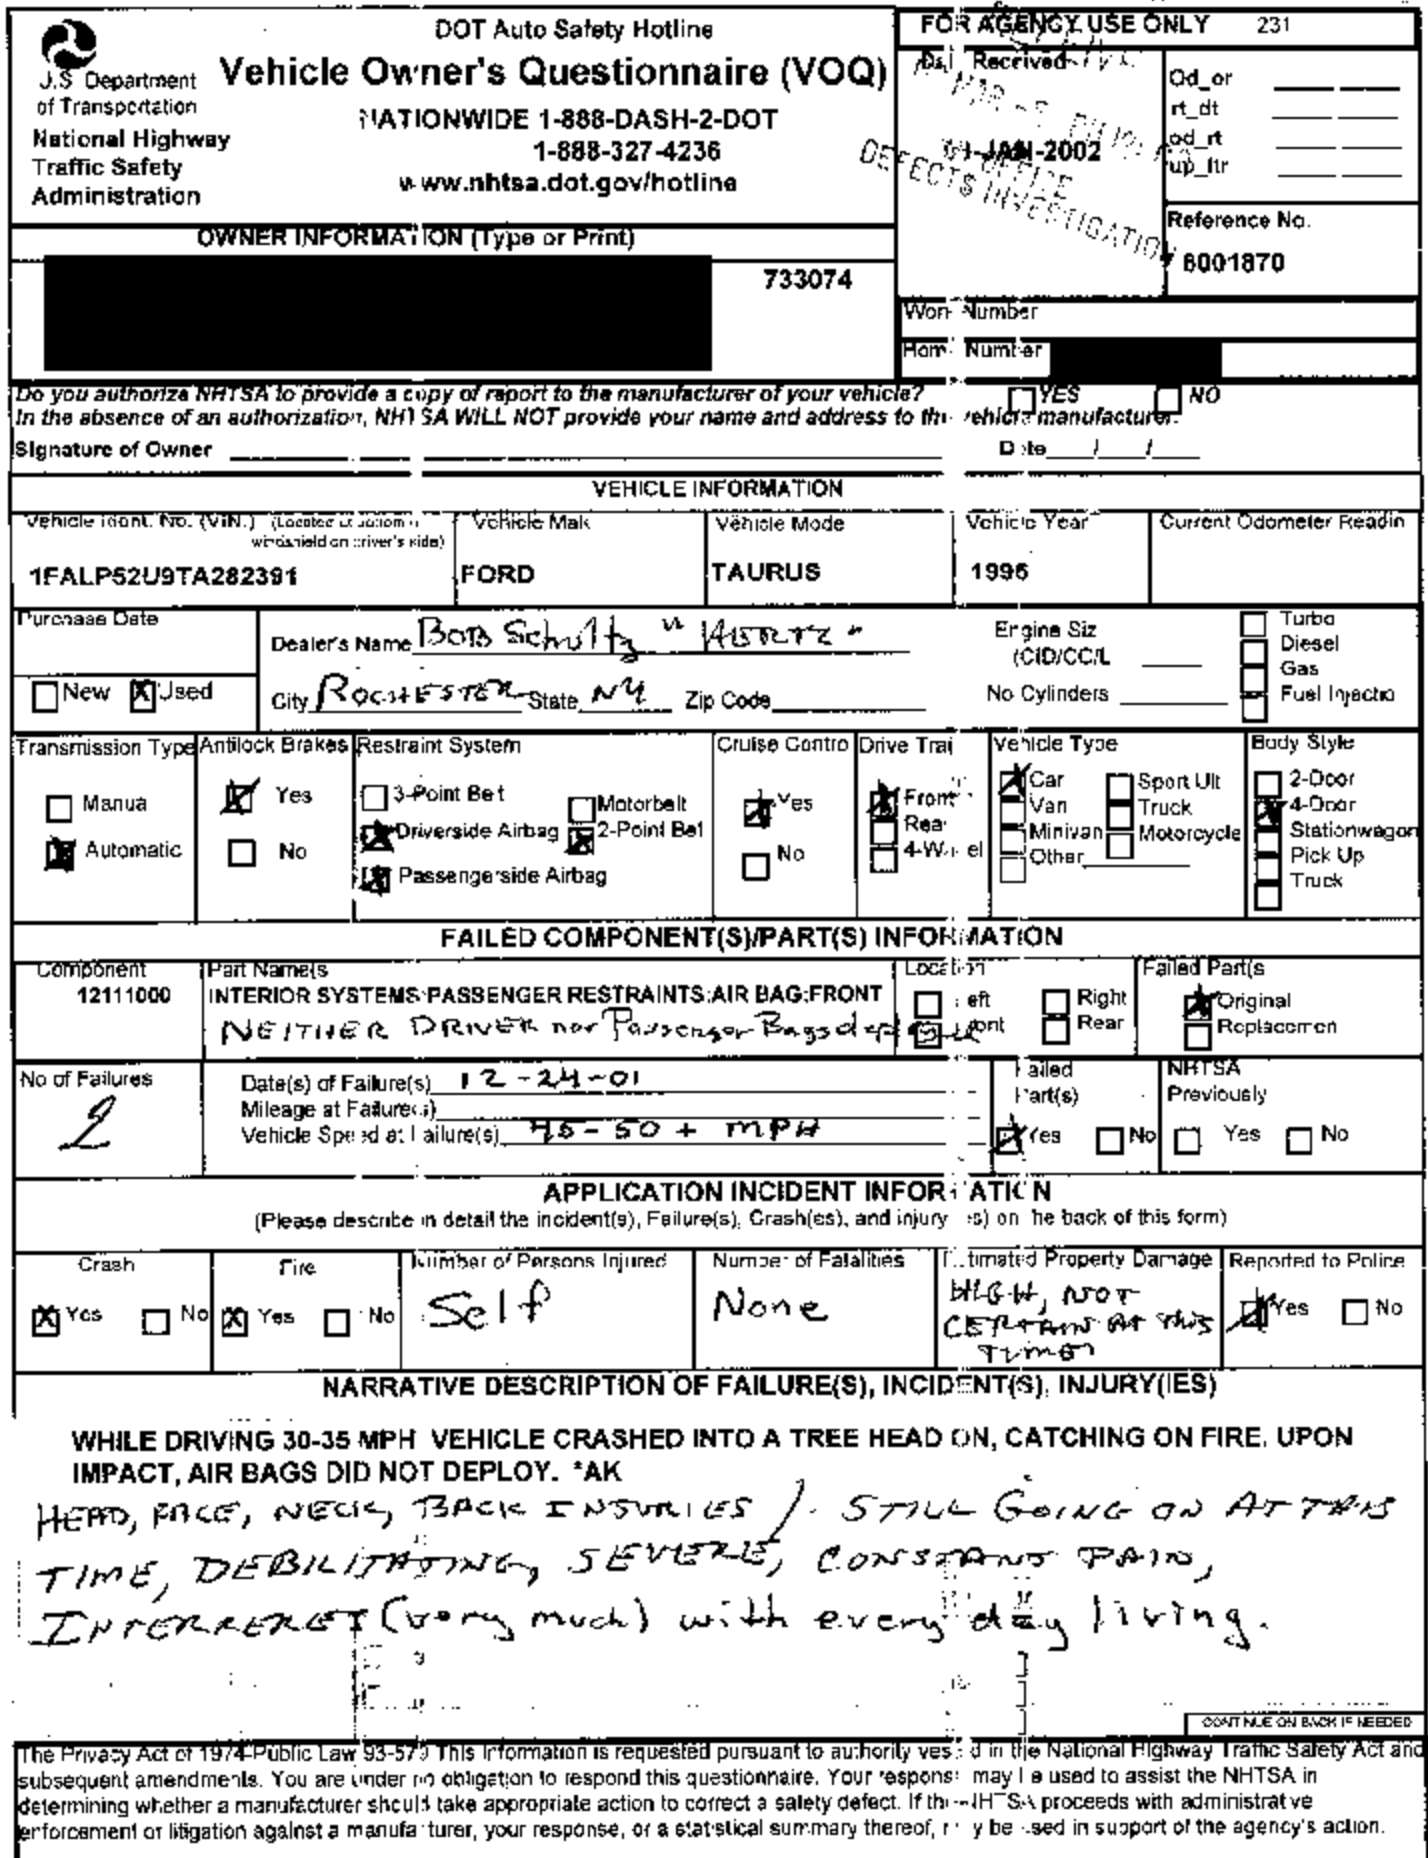 DOT Auto Safety Hotline
Vehicle Owner's Questionnaire (VOQ)
NATIONWIDE 1-888-DASH-2-DOT
1-888-327-4236
www.nhtsa.dot.gov/hotline
U.S. Department
of Transportation
National Highway
Traffic Safety
Administration
FOR AGENCY USE ONLY 231
Received
-JAN-2002
OFFICE
DEFECTS INVESTIGATION
Od_or
rt_dt
od_rt
up_ltr
Reference No.
8001870
OWNER INFORMATION (Type or Print)
733074
Work Number
Home Number
Do you authorize NHTSA to provide a copy of report to the manufacturer of your vehicle? YES NO
In the absence of an authorization, NHTSA WILL NOT provide your name and address to the vehicle manufacturer.
Signature of Owner Date / /
VEHICLE INFORMATION
Vehicle Ident. No. (VIN.) (Located at bottom of windshield on driver's side)
1FALP52U9TA282391
Vehicle Mak
FORD
Vehicle Mode
TAURUS
Vehicle Year
1996
Current Odometer Readin
Purchase Date
New X Used
Dealer's Name Bob Schultz " HERTZ "
City ROCHESTER State NY Zip Code
Engine Siz
(CID/CC/L
No Cylinders
Turbo
Diesel
Gas
Fuel Injectio
Transmission Type
Manua
X Automatic
Antilock Brakes
X Yes
No
Restraint System
3-Point Belt
Motorbelt
X Driverside Airbag
X 2-Point Bel
X Passengerside Airbag
Cruise Contro
X Yes
No
Drive Trai
X Front
Rear
4-Wheel
Vehicle Type
X Car
Van
Minivan
Other
Sport Ult
Truck
Motorcycle
Body Style
2-Door
X 4-Door
Stationwagon
Pick Up
Truck
FAILED COMPONENT(S)/PART(S) INFORMATION
Component
12111000
Part Name(s
INTERIOR SYSTEMS:PASSENGER RESTRAINTS:AIR BAG:FRONT
NEITHER DRIVER nor Passenger Bags deployed
Location
Left
Front
Right
Rear
Failed Part(s
X Original
Replacemen
No of Failures
2
Date(s) of Failure(s) 12-24-01
Mileage at Failure(s)
Vehicle Speed at Failure(s) 45-50 + MPH
Failed
Part(s)
X Yes No
NHTSA
Previously
Yes No
APPLICATION INCIDENT INFORMATION
(Please describe in detail the incident(s), Failure(s), Crash(es), and injury(ies) on the back of this form)
Crash
X Yes No
Fire
X Yes No
Number of Persons Injured
Self
Number of Fatalities
None
Estimated Property Damage
HIGH, NOT
CERTAIN AT THIS
TIME
Reported to Police
X Yes No
NARRATIVE DESCRIPTION OF FAILURE(S), INCIDENT(S), INJURY(IES)
WHILE DRIVING 30-35 MPH VEHICLE CRASHED INTO A TREE HEAD ON, CATCHING ON FIRE. UPON
IMPACT, AIR BAGS DID NOT DEPLOY. *AK
HEAD, FACE, NECK, BACK INJURIES). STILL GOING ON AT THIS
TIME, DEBILITATING, SEVERE, CONSTANT PAIN,
INTERFERES (very much) with every day living.
CONTINUE ON BACK IF NEEDED
The Privacy Act of 1974-Public Law 93-579 This information is requested pursuant to authority vested in the National Highway Traffic Safety Act and
subsequent amendments. You are under no obligation to respond this questionnaire. Your response may be used to assist the NHTSA in
determining whether a manufacturer should take appropriate action to correct a safety defect. If the NHTSA proceeds with administrative
enforcement or litigation against a manufacturer, your response, or a statistical summary thereof, may be used in support of the agency's action.